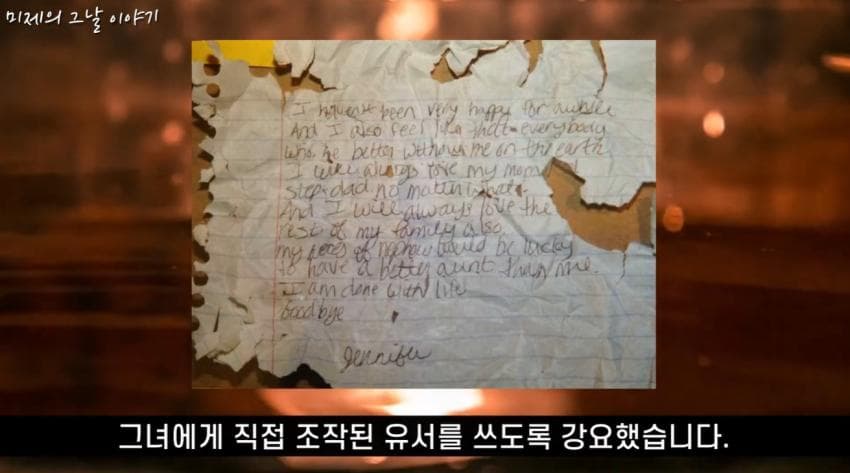 미제의 그날 이야기
I haven't been very happy for awhile
And I also feel like that everybody
be better without me on the earth
I will always love my mom
step-dad no matter what.
And I will always love the
rest of my family also
my of nephew would be lucky
to have a better aunt than me.
I am done with life
Goodbye
Jennifer
그녀에게 직접 조작된 유서를 쓰도록 강요했습니다.